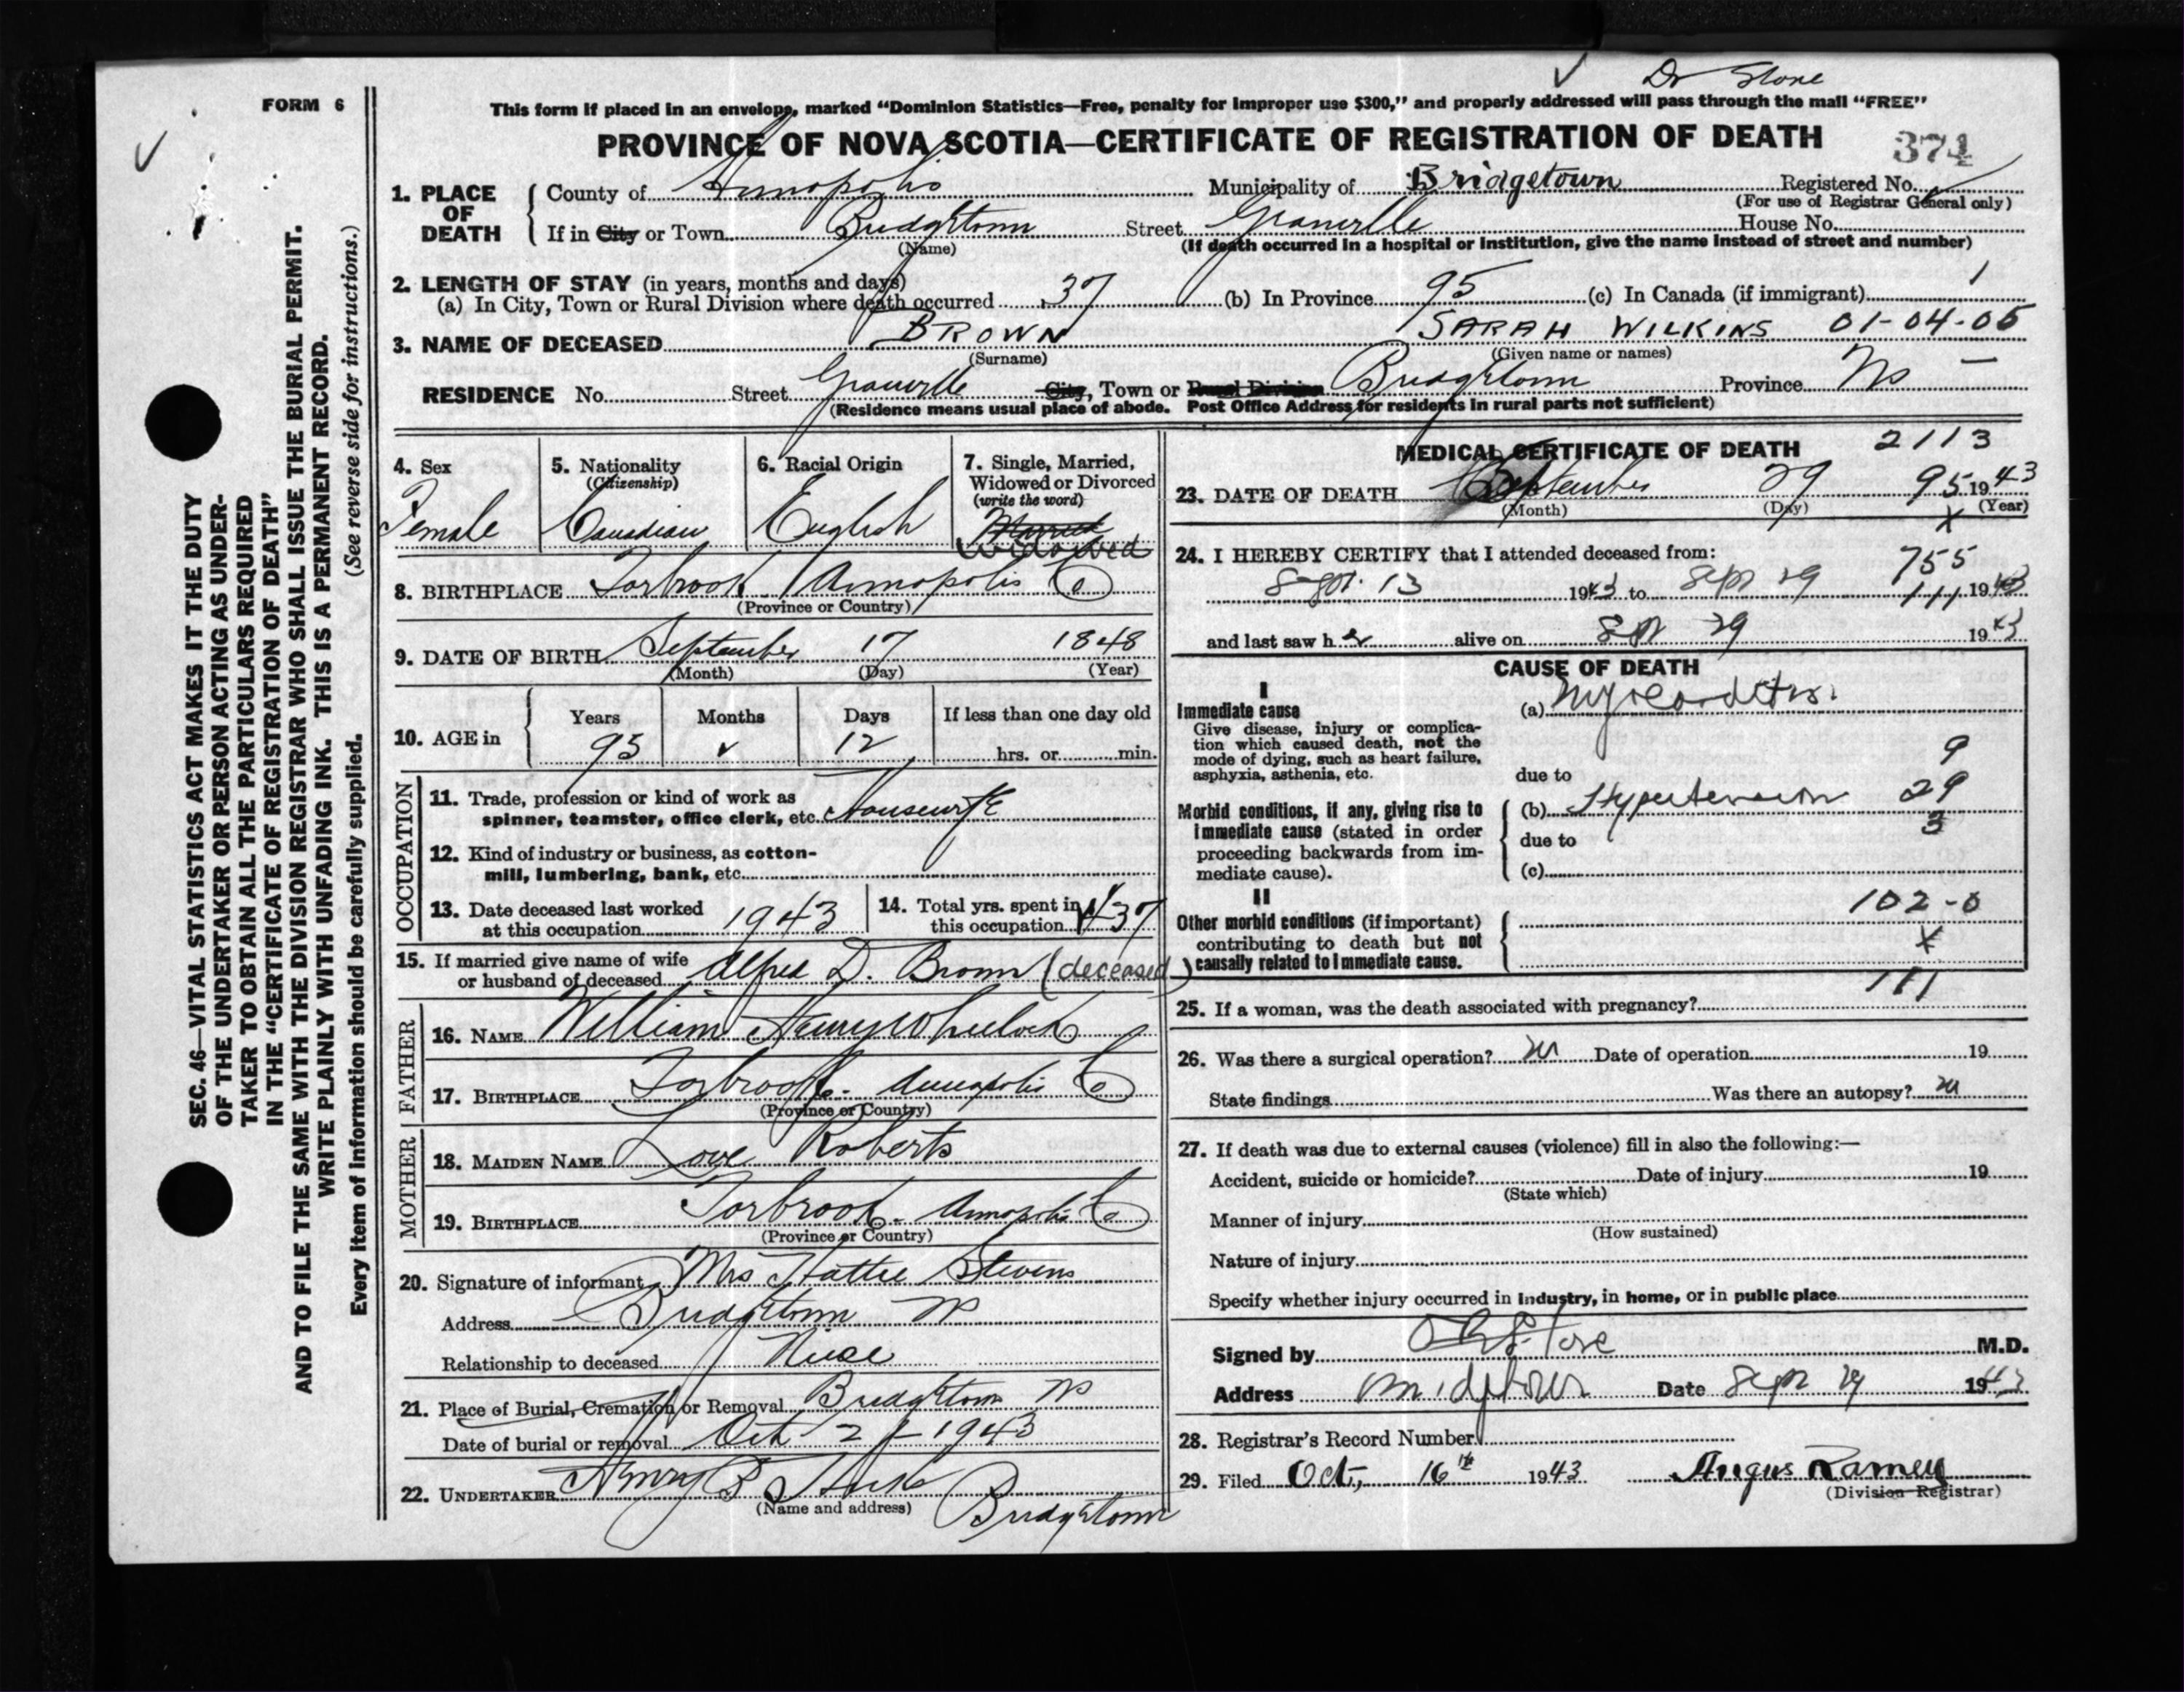 Dr Stone
FORM 6
This form if placed in an envelope, marked “Dominion Statistics—Free, penalty for improper use $300,” and properly addressed will pass through the mail “FREE”
PROVINCE OF NOVA SCOTIA—CERTIFICATE OF REGISTRATION OF DEATH
374
1. PLACE OF DEATH
County of Annapolis Municipality of Bridgetown Registered No.
(For use of Registrar General only)
If in City or Town Bridgetown Street Granville House No.
(Name) (If death occurred in a hospital or institution, give the name instead of street and number)
2. LENGTH OF STAY (in years, months and days)
(a) In City, Town or Rural Division where death occurred 37 (b) In Province 95 (c) In Canada (if immigrant) 1
3. NAME OF DECEASED BROWN SARAH WILKINS 01-04-05
(Surname) (Given name or names)
RESIDENCE No. Street Granville City, Town or Rural Division Bridgetown Province NS —
(Residence means usual place of abode. Post Office Address for residents in rural parts not sufficient)
4. Sex
Female
5. Nationality
(Citizenship)
Canadian
6. Racial Origin
English
7. Single, Married,
Widowed or Divorced
(write the word)
Married
Widowed
8. BIRTHPLACE Torbrook Annapolis Co
(Province or Country)
9. DATE OF BIRTH September 17 1848
(Month) (Day) (Year)
10. AGE in
Years Months Days If less than one day old
95 12 hrs. or min.
OCCUPATION
11. Trade, profession or kind of work as
spinner, teamster, office clerk, etc. Housewife
12. Kind of industry or business, as cotton-
mill, lumbering, bank, etc.
13. Date deceased last worked
at this occupation 1943
14. Total yrs. spent in
this occupation 37
15. If married give name of wife
or husband of deceased Alfred D. Brown (deceased)
FATHER
16. NAME William Henry Wheelock
17. BIRTHPLACE Torbrook - Annapolis Co
(Province or Country)
MOTHER
18. MAIDEN NAME Love Roberts
19. BIRTHPLACE Torbrook - Annapolis Co
(Province or Country)
20. Signature of informant Mrs Hattie Stevens
Address Bridgetown NS
Relationship to deceased Niece
21. Place of Burial, Cremation or Removal Bridgetown NS
Date of burial or removal Oct 2 - 1943
22. UNDERTAKER Henry B Hicks
(Name and address) Bridgetown
MEDICAL CERTIFICATE OF DEATH 2113
23. DATE OF DEATH September 29 95 1943
(Month) (Day) (Year)
X
24. I HEREBY CERTIFY that I attended deceased from: 755
Sept. 13 1943 to Sept 29 1943
111
and last saw her alive on Sept 29 1943
CAUSE OF DEATH
I
Immediate cause
Give disease, injury or complica-
tion which caused death, not the
mode of dying, such as heart failure,
asphyxia, asthenia, etc.
(a) Myocarditis.
9
due to
Morbid conditions, if any, giving rise to
immediate cause (stated in order
proceeding backwards from im-
mediate cause).
(b) Hypertension 29
3
due to
(c)
II
Other morbid conditions (if important)
contributing to death but not
causally related to immediate cause.
102-0
X
111
25. If a woman, was the death associated with pregnancy?
26. Was there a surgical operation? no Date of operation 19
State findings Was there an autopsy? no
27. If death was due to external causes (violence) fill in also the following:—
Accident, suicide or homicide? Date of injury 19
(State which)
Manner of injury
(How sustained)
Nature of injury
Specify whether injury occurred in industry, in home, or in public place
Signed by Stone M.D.
Address Bridgetown Date Sept 29 1943
28. Registrar's Record Number
29. Filed Oct, 16th 1943 Angus Ramey
(Division Registrar)
SEC. 46—VITAL STATISTICS ACT MAKES IT THE DUTY
OF THE UNDERTAKER OR PERSON ACTING AS UNDER-
TAKER TO OBTAIN ALL THE PARTICULARS REQUIRED
IN THE “CERTIFICATE OF REGISTRATION OF DEATH”
AND TO FILE THE SAME WITH THE DIVISION REGISTRAR WHO SHALL ISSUE THE BURIAL PERMIT.
WRITE PLAINLY WITH UNFADING INK. THIS IS A PERMANENT RECORD.
(See reverse side for instructions.)
Every item of information should be carefully supplied.